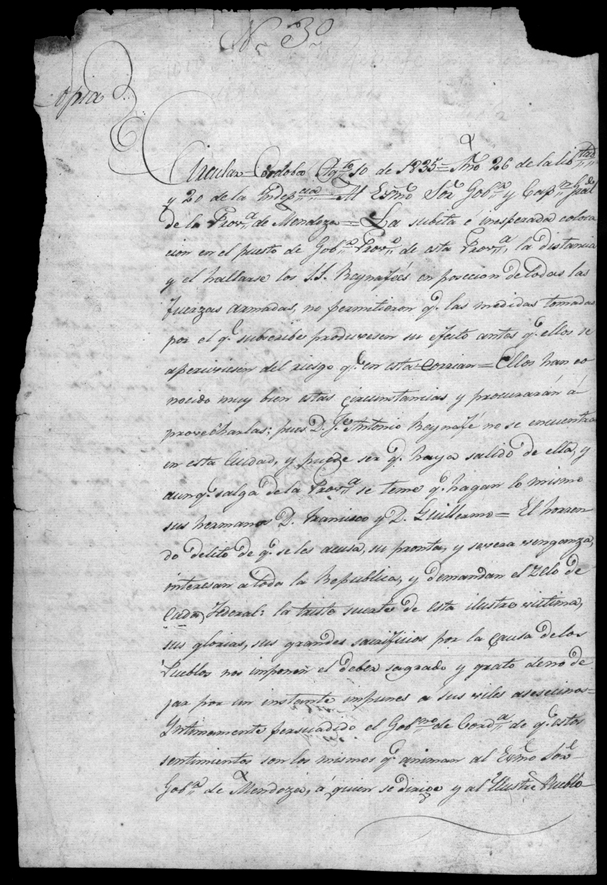 N. 30
Copia
Circular Cordoba Ag.to 10 de 1835 = Año 26 de la lib.tad
y 20 de la Indep.cia = Al Exmo Sor. Gob.or y Cap.n Gral
de la Prov.a de Mendoza = La subita e inesperada coloca
cion en el puesto de Gob.or Prov.o de esta Prov.a, la distancia
y el hallarse los SS. Reynafees en posecion de todas las
fuerzas armadas, no permitieron q.e las medidas tomadas
por el q.e subscribe produxesen su efecto antes q.e ellos se
aperciviesen del riesgo q.e en esta corrian = Ellos han co
nocido muy bien estas circunstancias y procurarán á
provecharlas: pues D. J.e Antonio Reynafé no se encuentra
en esta Ciudad, y puede ser q.e haya salido de ella, y
aunq.e salga de la Prov.a se teme q.e hagan lo mismo
sus hermanos D. Francisco y D. Guillermo = El horren
do delito de q.e se les acusa, su pronta, y severa venganza,
interesan a toda la Republica, y demandan el Zelo de
Cada Federal: la triste suerte de esta ilustre victima,
sus glorias, sus grandes sacrificios por la causa de los
Pueblos nos imponen el deber sagrado y grato de no de
jar por un instante impunes a sus viles asecinos =
Intimamente persuadido el Gob.no de Cord.a de q.e estos
sentimientos son los mismos q.e animan al Exmo Sor.
Gob.or de Mendoza, á quien se dirige y al Ilustre Pueblo